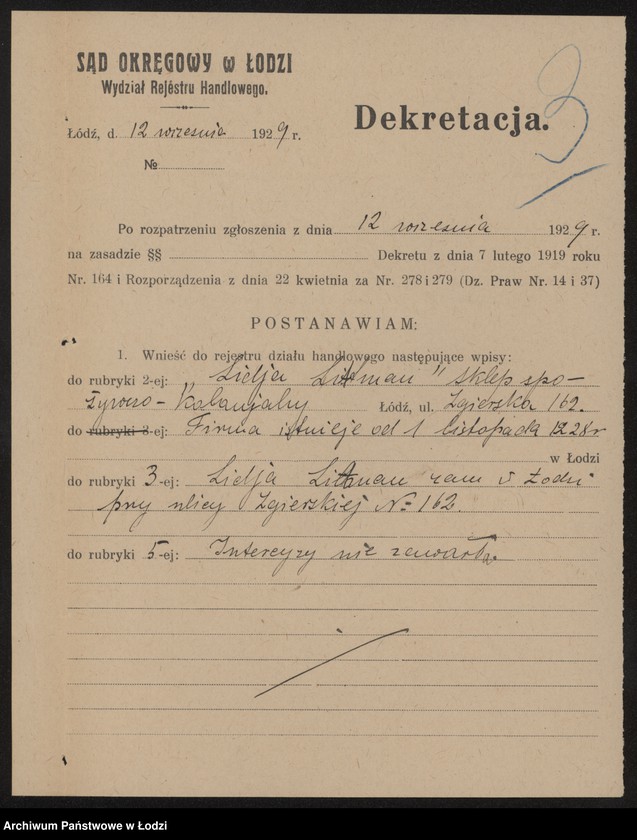 3
SĄD OKRĘGOWY w ŁODZI
Wydział Rejéstru Handlowego.
Dekretacja.
Łódź, d. 12 września 1929 r.
№
Po rozpatrzeniu zgłoszenia z dnia 12 września 1929 r.
na zasadzie §§ Dekretu z dnia 7 lutego 1919 roku
Nr. 164 i Rozporządzenia z dnia 22 kwietnia za Nr. 278 i 279 (Dz. Praw Nr. 14 i 37)
POSTANAWIAM:
1. Wnieść do rejestru działu handlowego następujące wpisy:
do rubryki 2-ej: „Lidja Litman" sklep spo-
żywczo-kolonjalny Łódź, ul. Zgierska 162.
do rubryki 3-ej: Firma istnieje od 1 listopada 1228 r
w Łodzi
do rubryki 3-ej: Lidja Litman zam w Łodzi
przy ulicy Zgierskiej № 162.
do rubryki 5-ej: Intercyzy nie zawarła.
Archiwum Państwowe w Łodzi